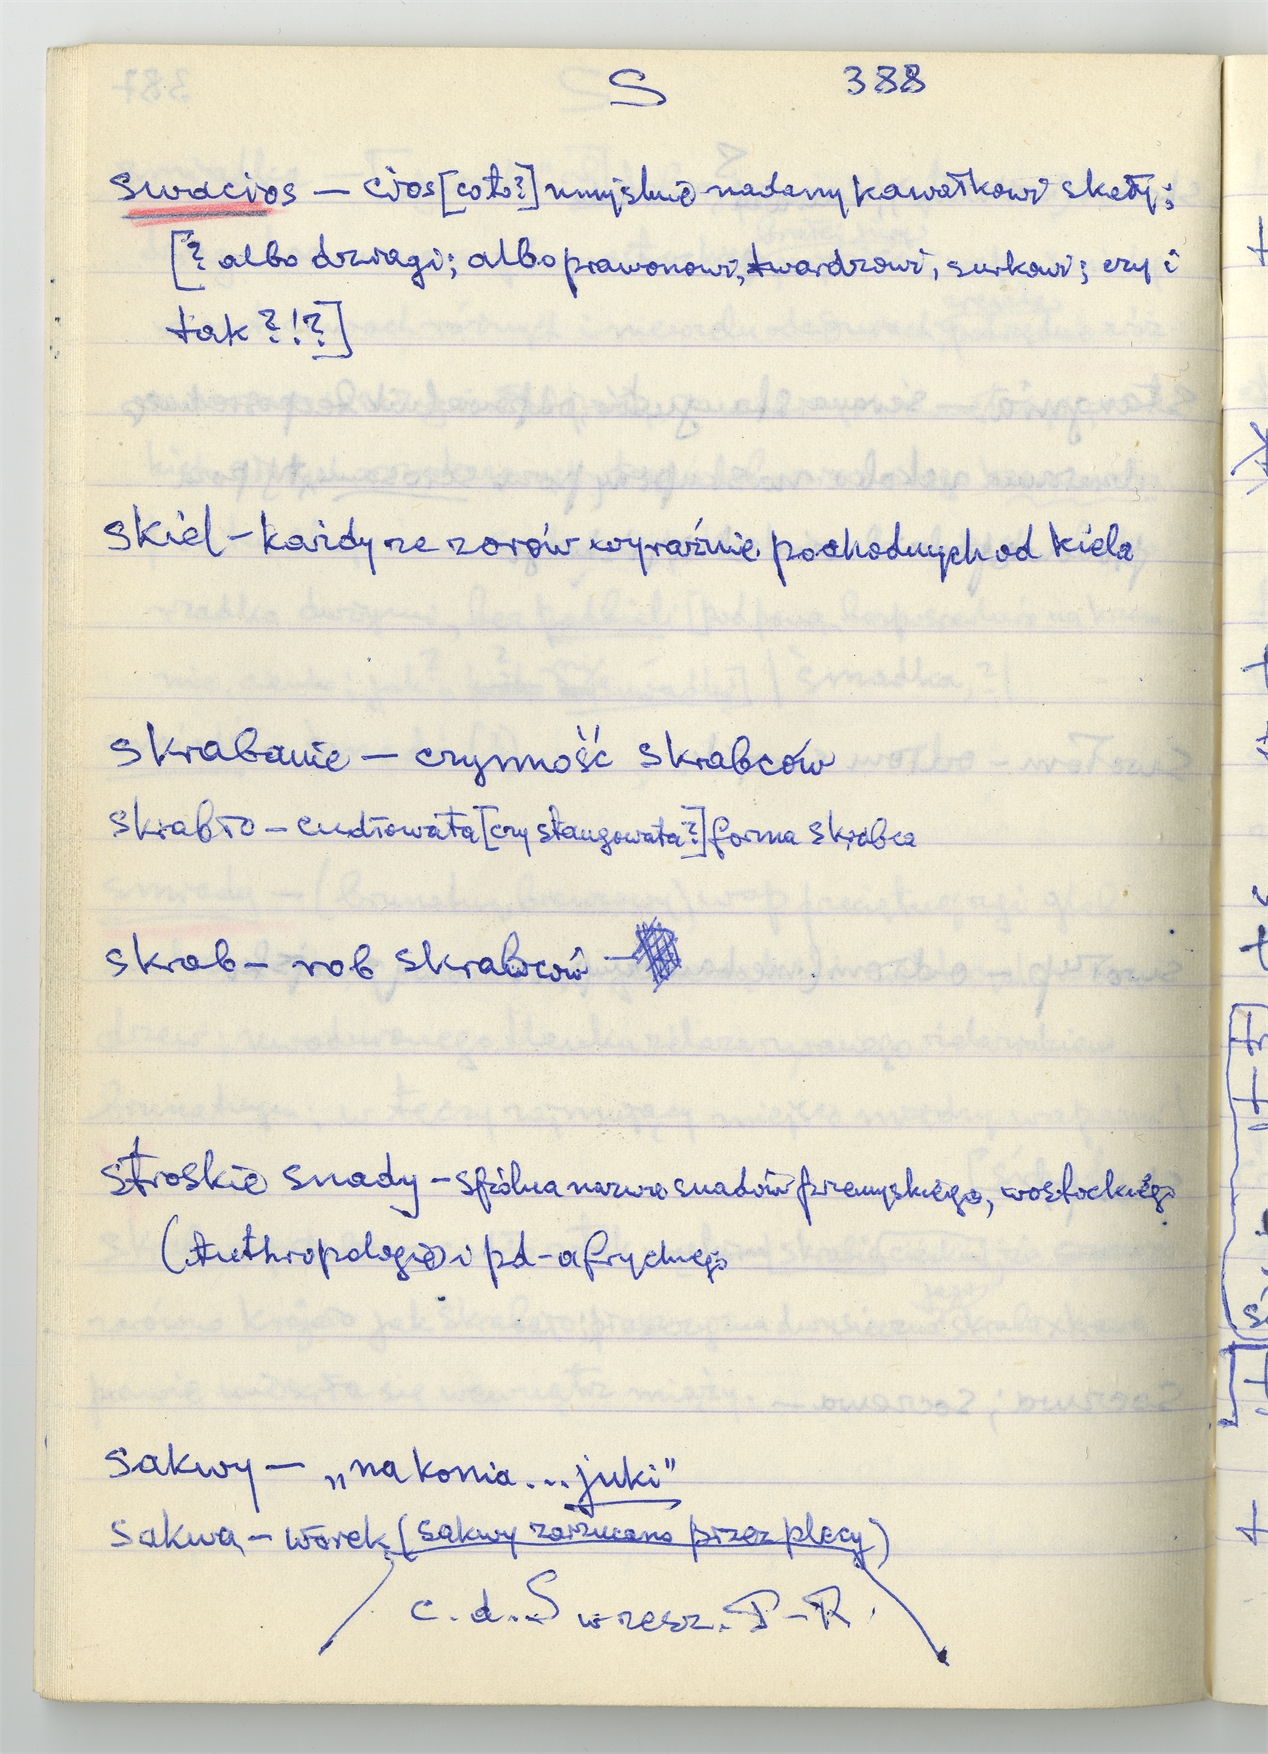 S 388
swacios — cios [co to?] umyślnie nadany kawałkowi skały;
[? albo dziragi; albo prawonowi, twardzowi, surkowi; czy i
tak?!?]
skiel – każdy ze zorów wyraźnie pochodnych od kiela
skrabanie — czynność skrabców
skrabło – cudłowata [czy stangowata?] forma skrabca
skrob – rob skrabców –
stroskie snady – spólna nazwa snadów przemyskiego, wostockiego
(Anthropologie) i pd-afrycknego
sakwy — „na konia... juki"
sakwa – worek (sakwy zarzucano przez plecy)
c. d. S w zesz. P–R.